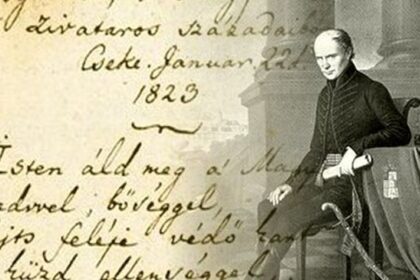 zivataros századaib
Cseke. Január 22d.
1823
Isten áld meg a' Magy
edvvel, bőséggel,
jts feléje védő kart
küzd ellenséggel,